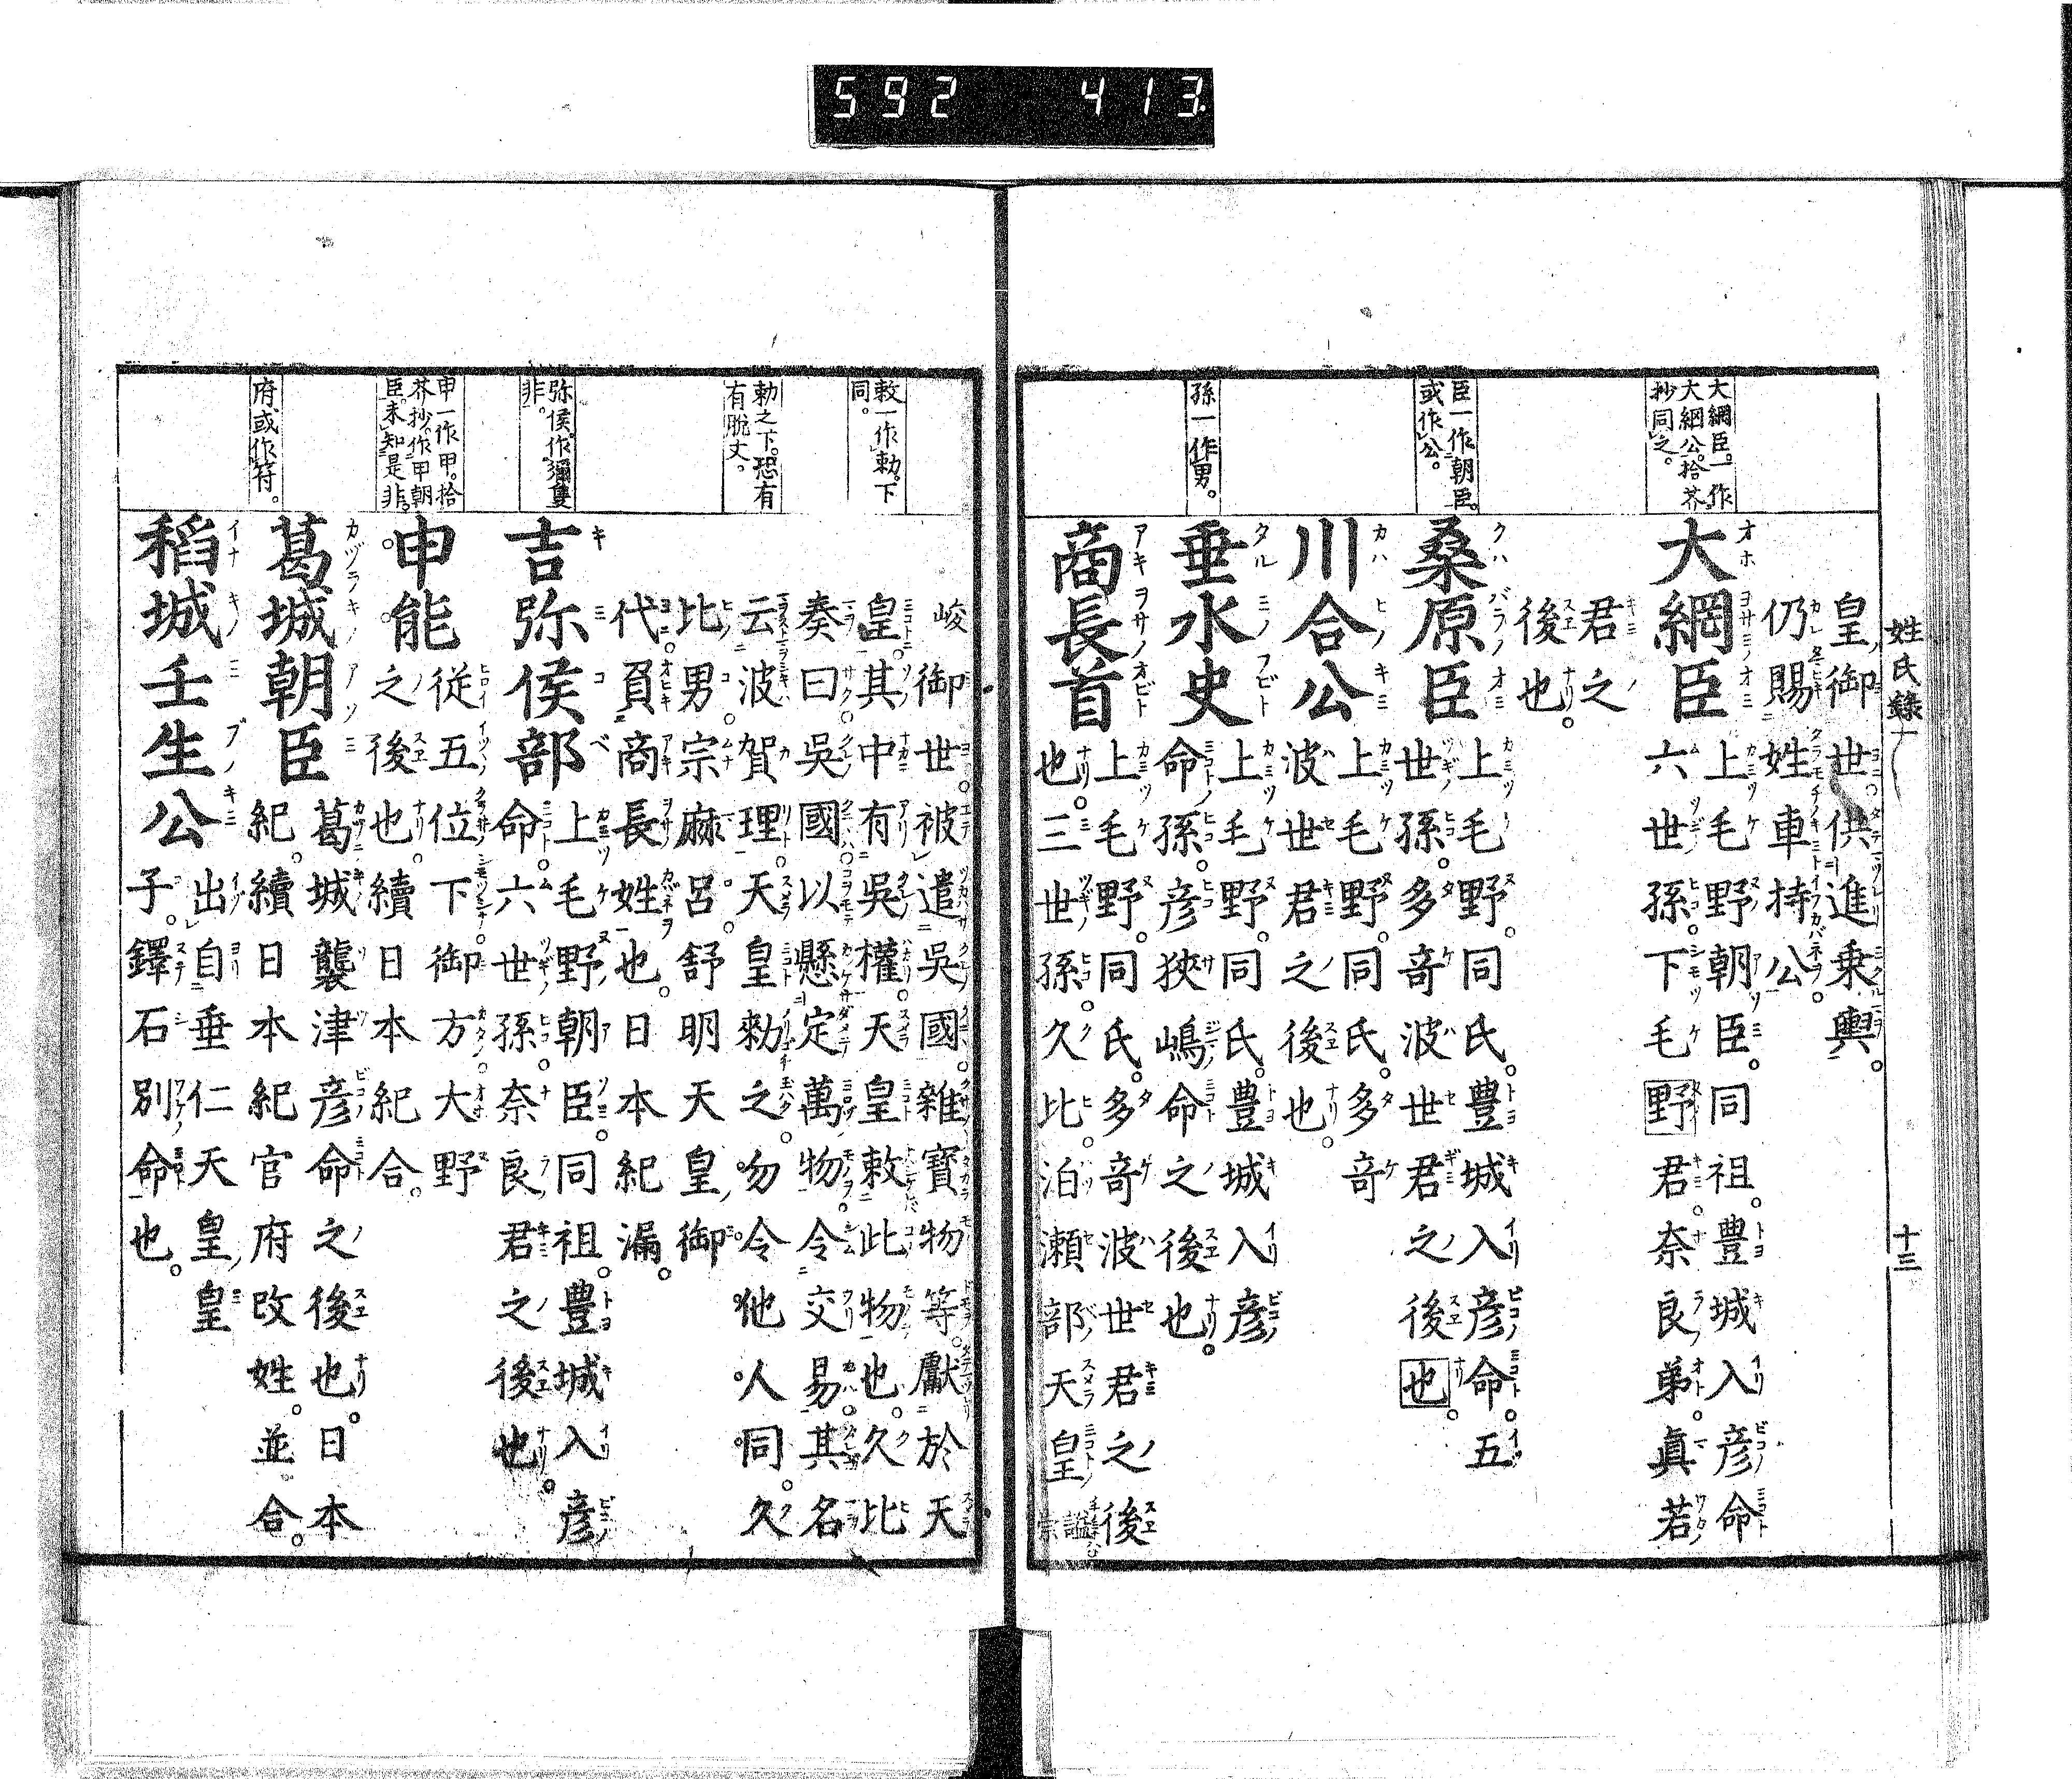 592 413
姓氏錄
十三
大綱臣。一作
大網公。拾芥
抄同之。
臣一作朝臣。
或作公。
孫一作男。
皇御世供進乗輿。
仍賜姓車持公。
大綱臣
上毛野朝臣。同祖。豊城入彦命
六世孫。下毛野君。奈良弟。真若
君之
後也。
桑原臣
上毛野。同氏。豊城入彦命。五
世孫。多奇波世君之後也。
川合公
上毛野。同氏。多奇
波世君之後也。
垂水史
上毛野。同氏。豊城入彦
命孫。彦狹嶋命之後也。
商長首
上毛野。同氏。多奇波世君之後
也。三世孫。久比。泊瀬部天皇謚崇
敕一作勅。下
同。
勅之下。恐有
有脫丈。
弥侯。作彌隻
非。
申一作甲。拾
芥抄。作甲朝
臣。未知是非。
府或作符。
峻御世被遣吳國。雜寳物等。獻於天
皇。其中有吳權。天皇敕此物也。久比
奏曰。吳國以懸定萬物。令交易。其名
云波賀理。天皇勅之。勿令他人同。久
比男。宗麻呂。舒明天皇御
代。負商長姓也。日本紀漏。
吉弥侯部
上毛野朝臣。同祖。豊城入彦
命。六世孫。奈良君之後也。
申能
従五位下御方大野
之後也。續日本紀合。
葛城朝臣
葛城襲津彦命之後也。日本
紀。續日本紀官府改姓。並合。
稻城壬生公
出自垂仁天皇皇
子。鐸石別命也。